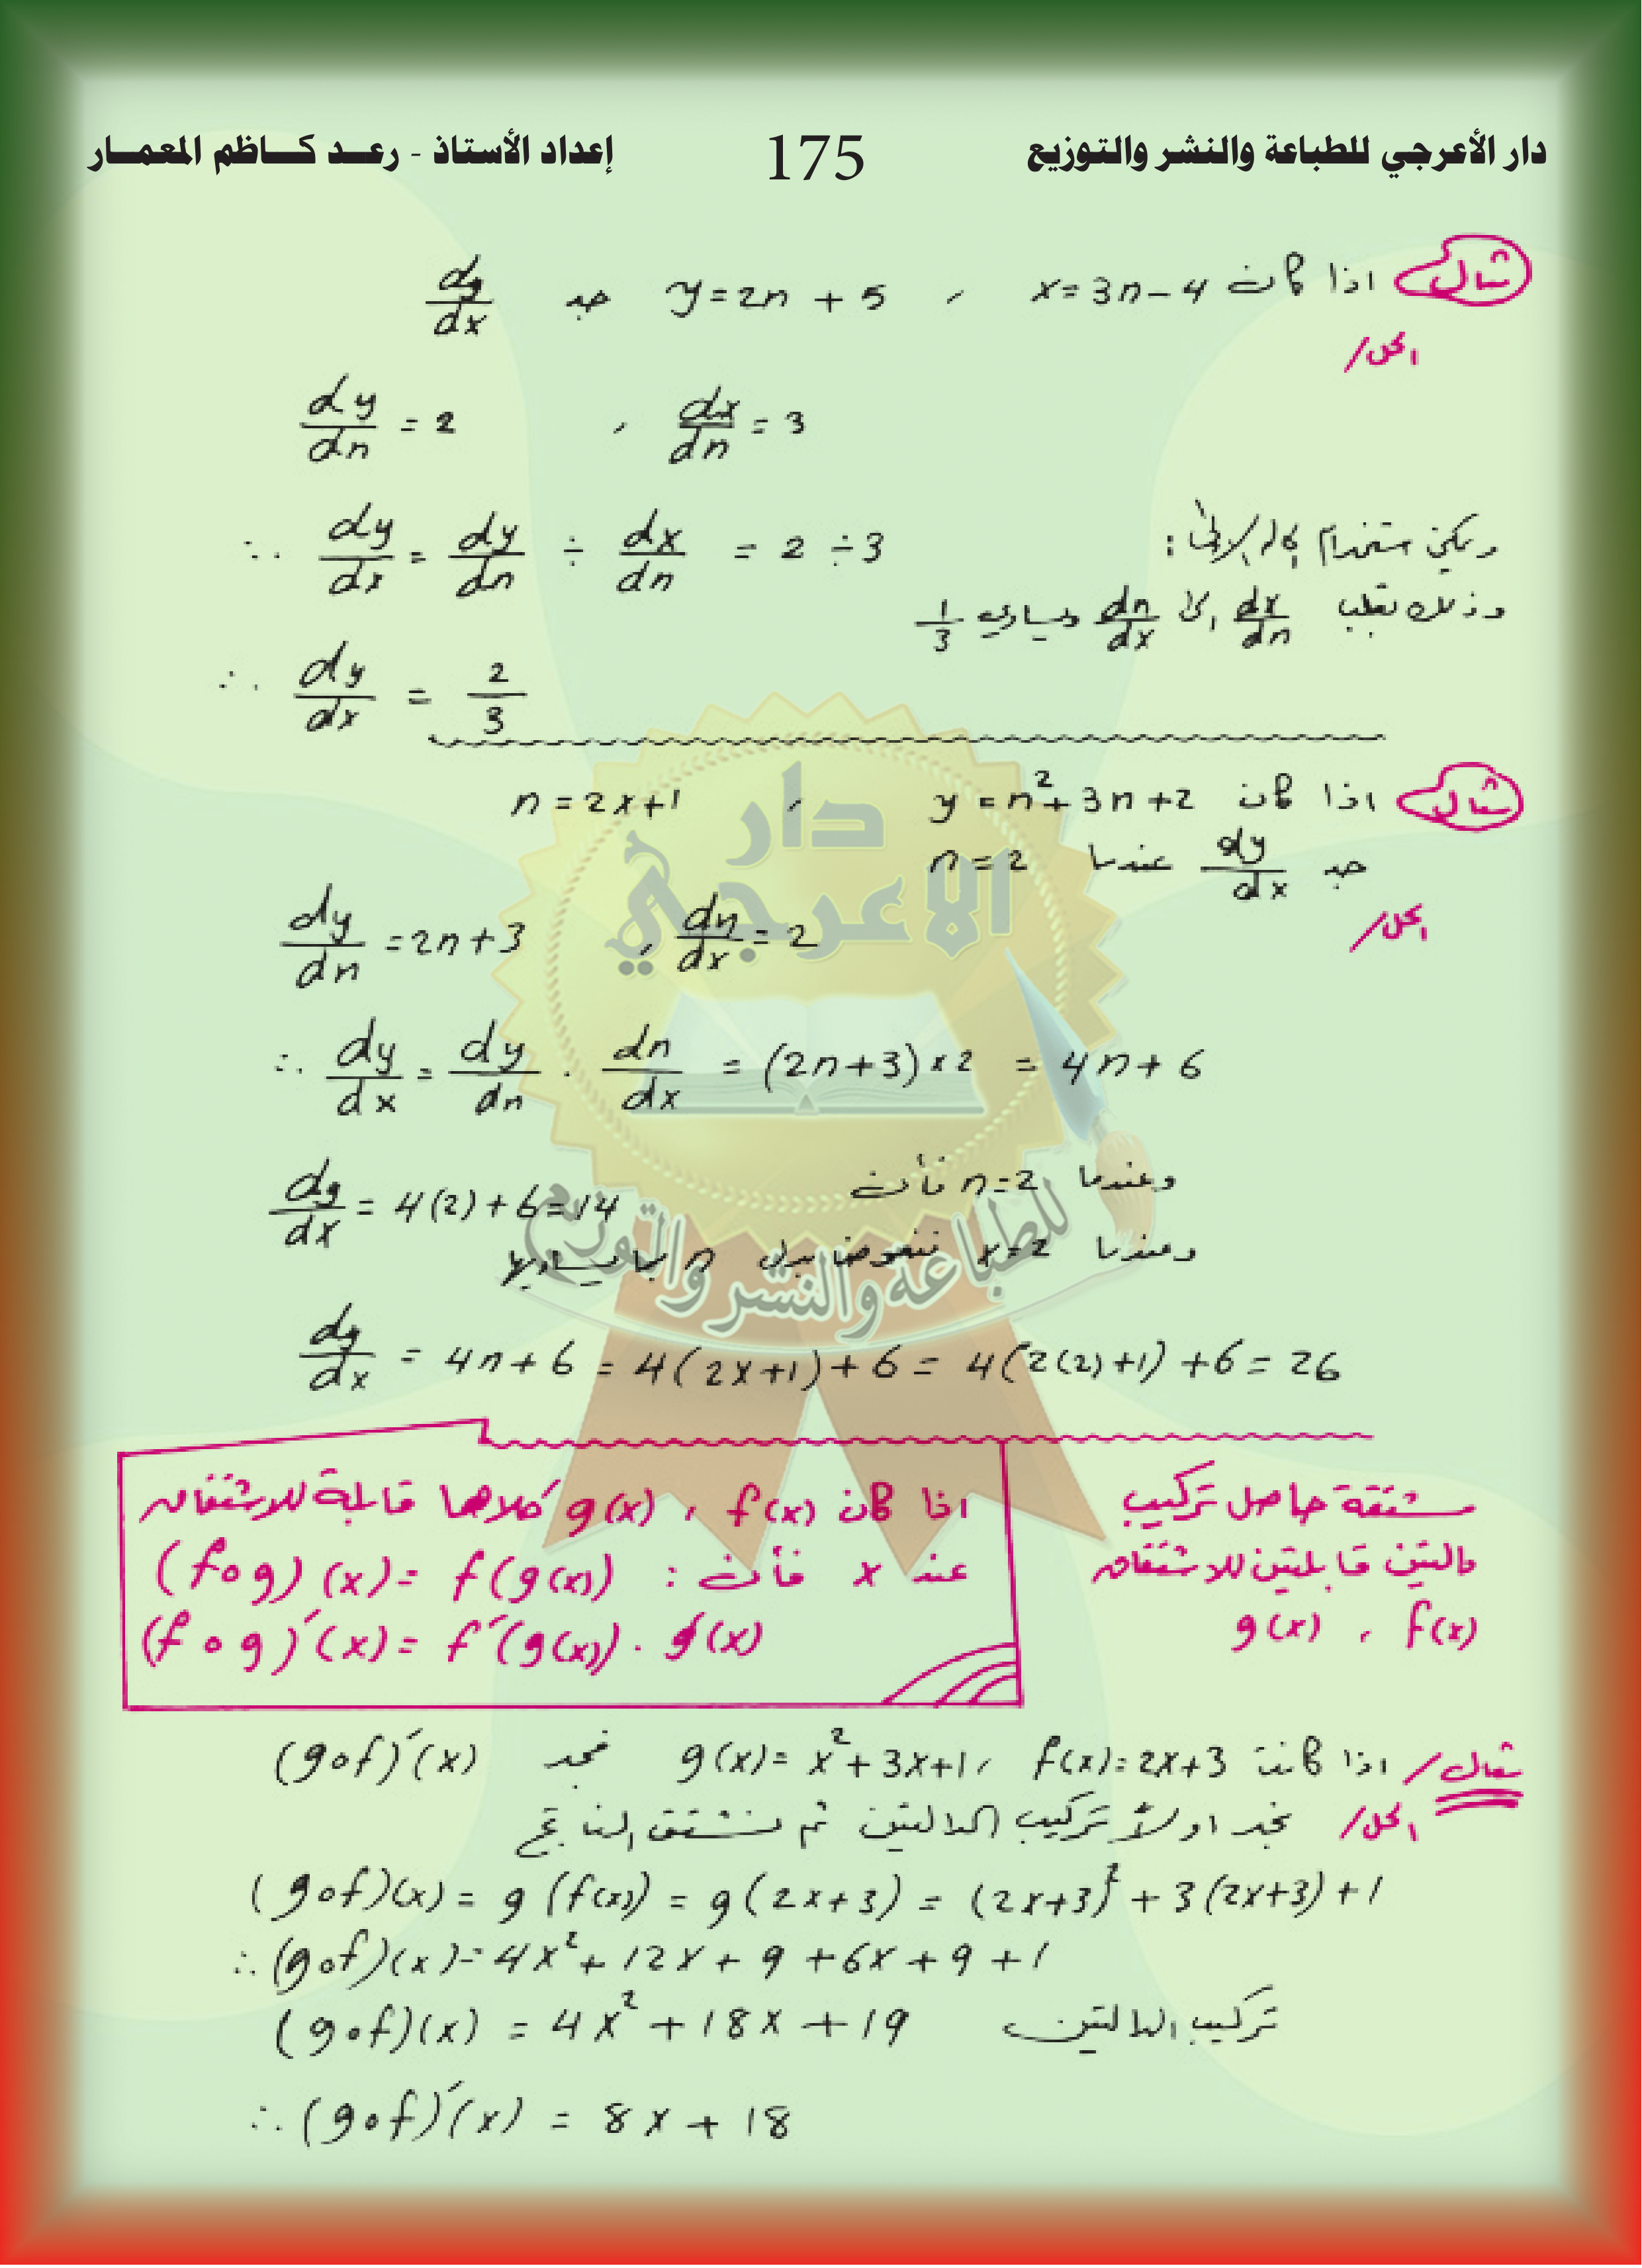 دار الأعرجي للطباعة والنشر والتوزيع 175 إعداد الأستاذ - رعد كاظم المعمار
مثال اذا كان x = 3n - 4 , y = 2n + 5 جد dy/dx
الحل/
dy/dn = 2 , dx/dn = 3
∴ dy/dx = dy/dn ÷ dx/dn = 2 ÷ 3
ويمكن استخدام
وذلك بقلب dx/dn الى dn/dx ويساوي 1/3
∴ dy/dx = 2/3
مثال اذا كان y = n² + 3n + 2 , n = 2x + 1
جد dy/dx عندما n = 2
الحل/
dy/dn = 2n + 3 , dn/dx = 2
∴ dy/dx = dy/dn . dn/dx = (2n + 3) × 2 = 4n + 6
وعندما n = 2 فأن
dy/dx = 4(2) + 6 = 14
وعندما x = 2 فنعوض بدل n بما يساويها
dy/dx = 4n + 6 = 4(2x + 1) + 6 = 4(2(2) + 1) + 6 = 26
دار
الاعرجي
للطباعة والنشر والتوزيع
مشتقة حاصل تركيب
دالتين قابلتين للاشتقاق
f(x) , g(x)
اذا كان f(x) , g(x) كلاهما قابلة للاشتقاق
عند x فأن : (fog)(x) = f(g(x))
(fog)′(x) = f′(g(x)) . g′(x)
مثال/ اذا كانت f(x) = 2x + 3 , g(x) = x² + 3x + 1 فجد (gof)′(x)
الحل/ نجد اولاً تركيب الدالتين ثم نشتق الناتج
(gof)(x) = g(f(x)) = g(2x + 3) = (2x + 3)² + 3(2x + 3) + 1
∴ (gof)(x) = 4x² + 12x + 9 + 6x + 9 + 1
(gof)(x) = 4x² + 18x + 19 تركيب الدالتين
∴ (gof)′(x) = 8x + 18